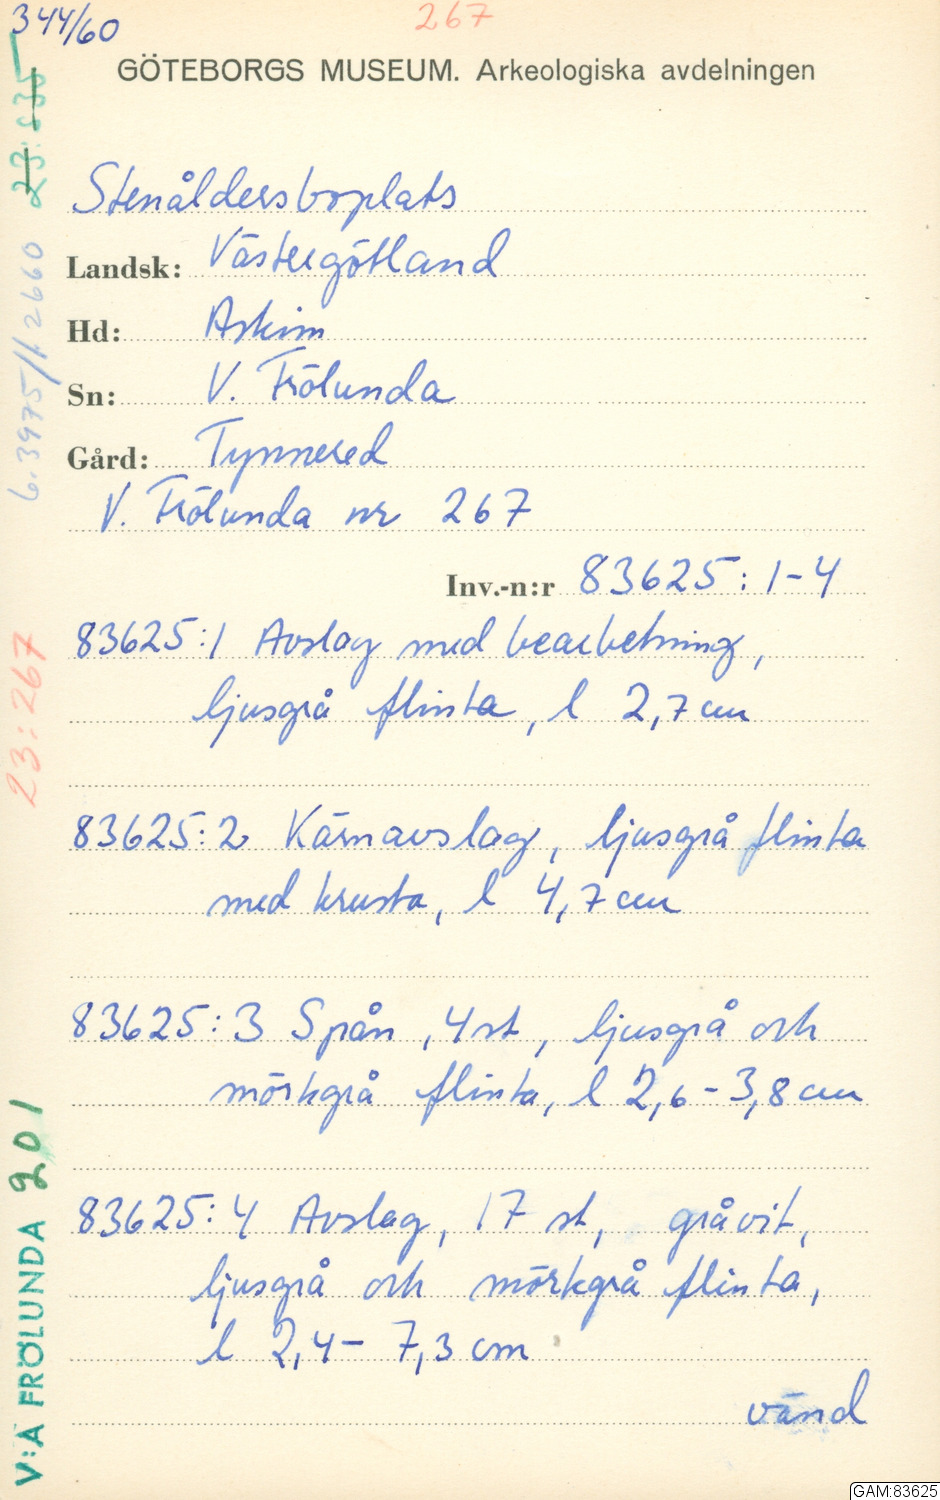 344/60
267
GÖTEBORGS MUSEUM. Arkeologiska avdelningen
Stenåldersboplats
Landsk: Västergötland
Hd: Askim
Sn: V. Frölunda
Gård: Tynnered
V. Frölunda nr 267
Inv.-n:r 83625:1-4
83625:1 Avslag med bearbetning,
ljusgrå flinta, l 2,7 cm
83625:2 Kärnavslag, ljusgrå flinta
med krusta, l 4,7 cm
83625:3 Spån, 4 st, ljusgrå och
mörkgrå flinta, l 2,6-3,8 cm
83625:4 Avslag, 17 st, gråvit,
ljusgrå och mörkgrå flinta,
l 2,4-7,3 cm
vänd
23:267
V:A FRÖLUNDA 201
GAM:83625